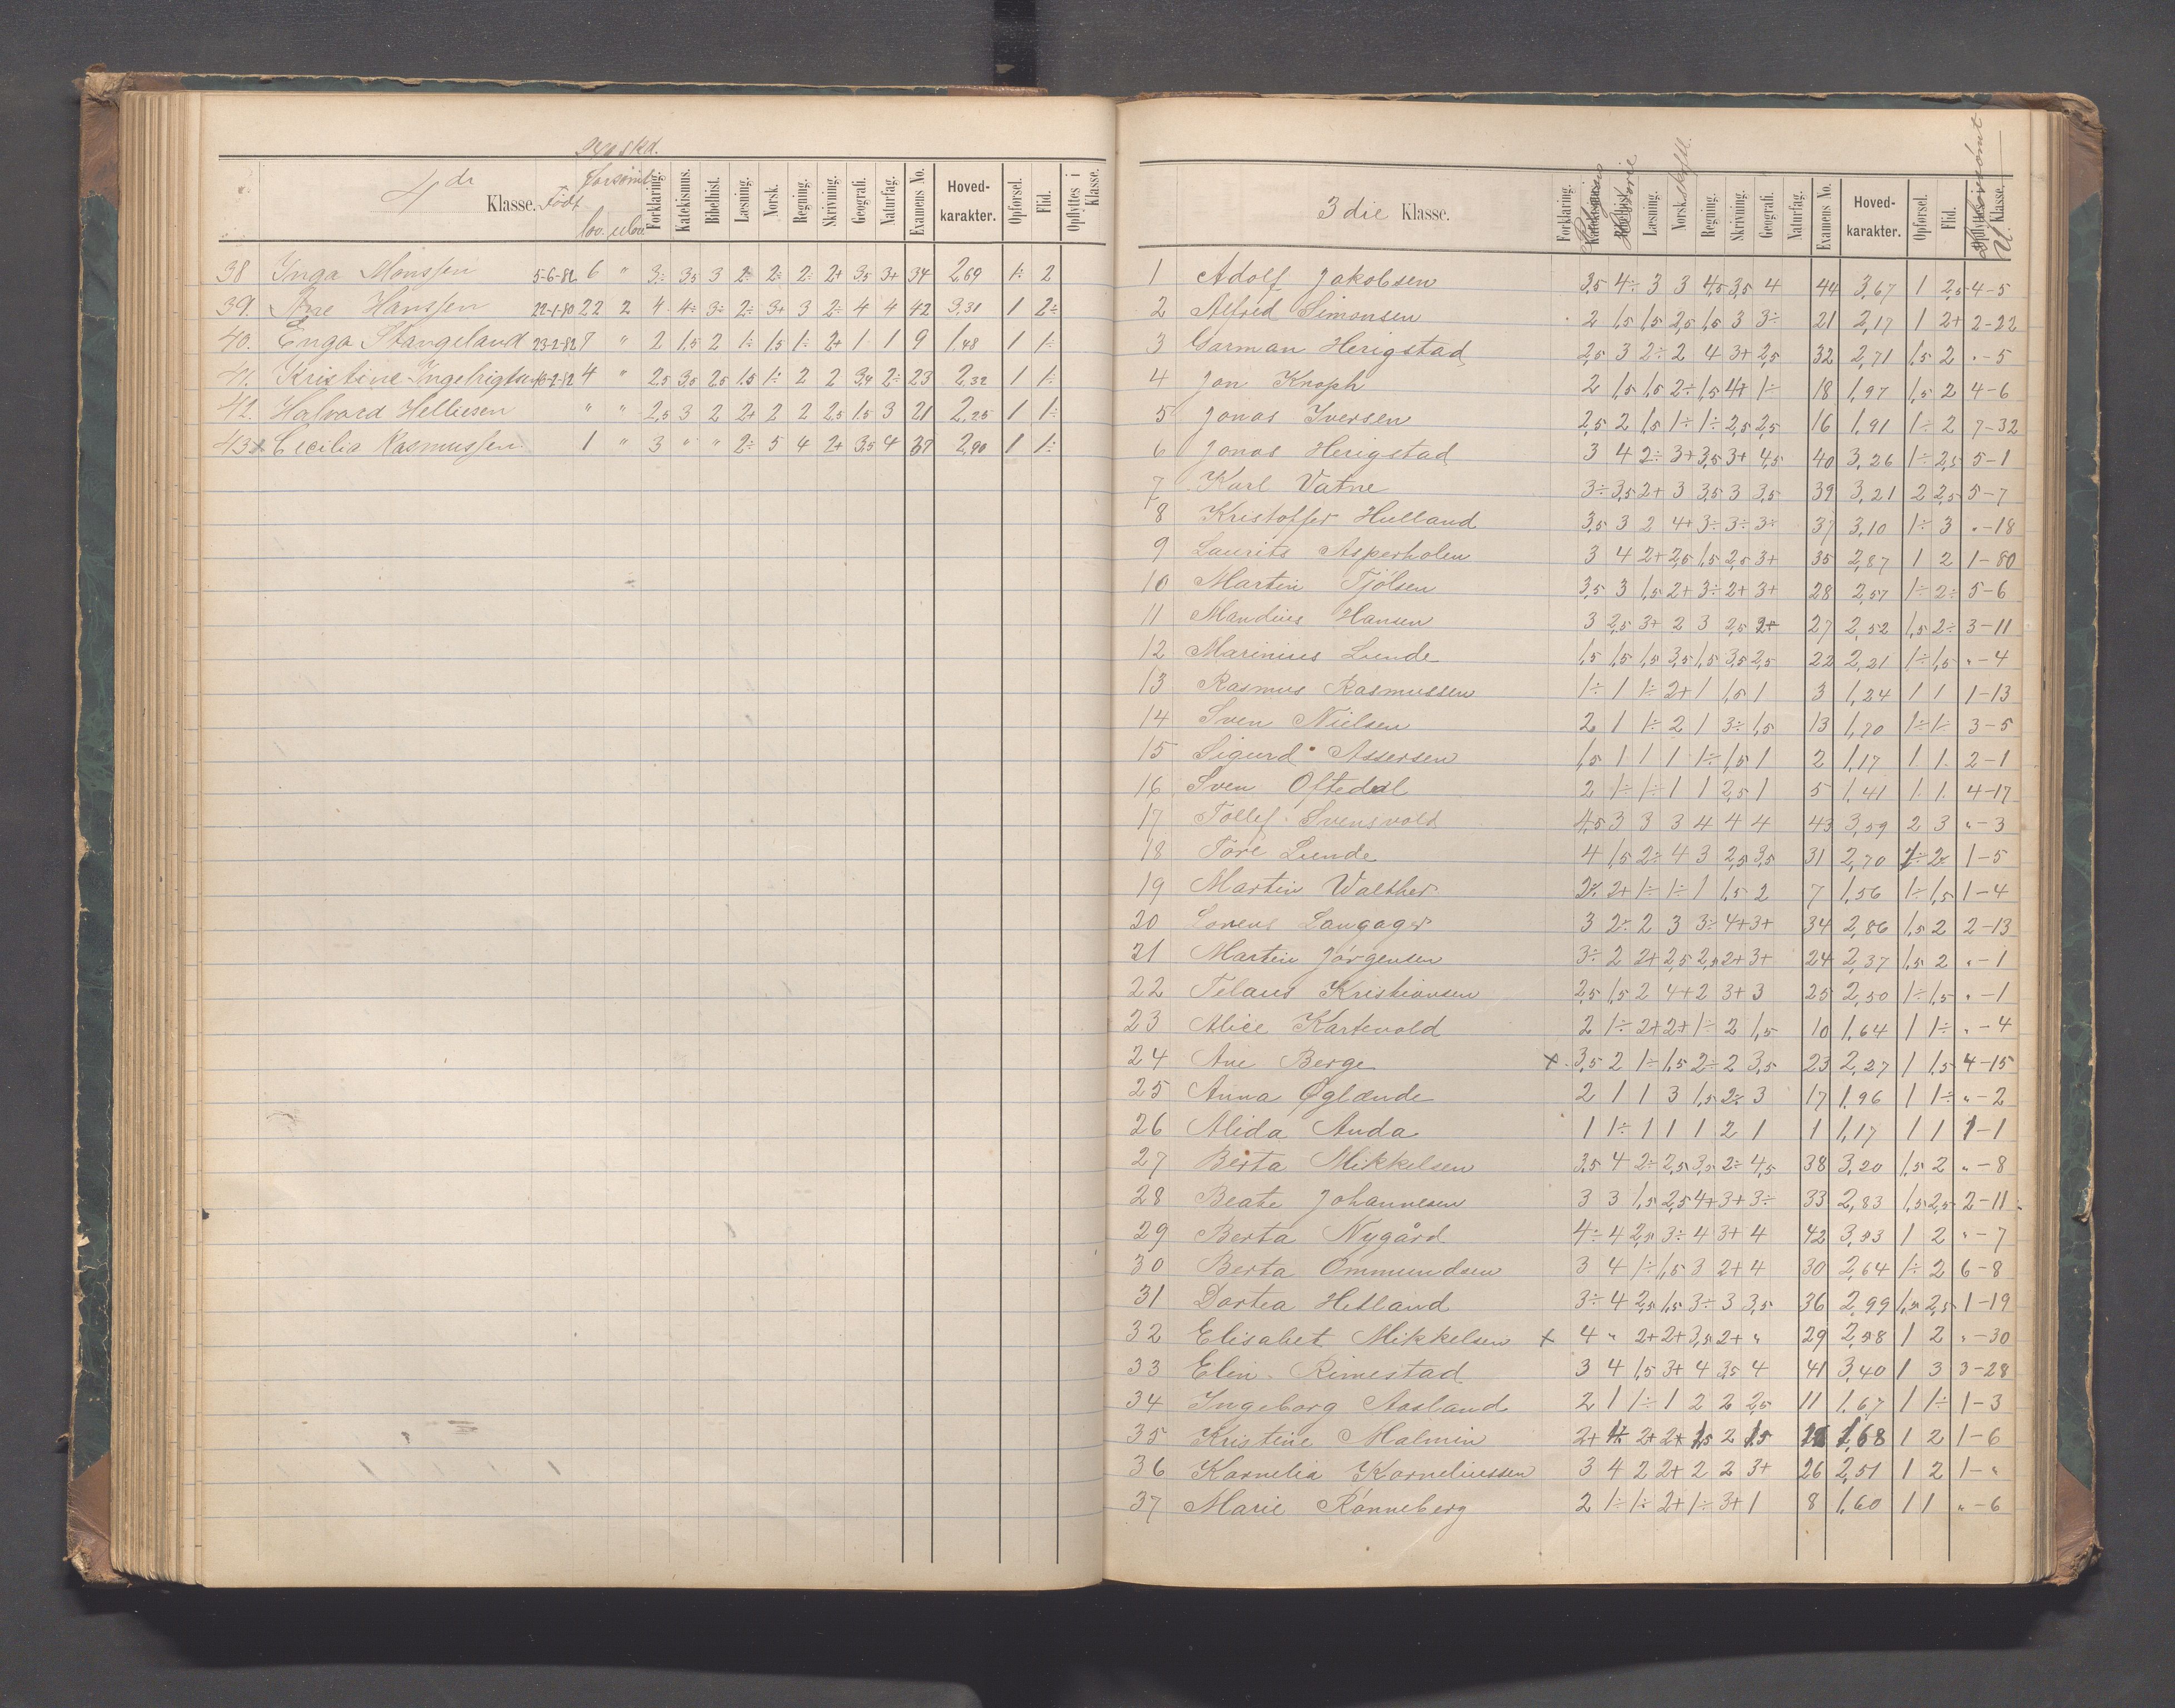 4de Klasse. Født forsømt lov. ulov. Forklaring. Katekismus. Bibelhist. Læsning. Norsk. Regning. Skrivning. Geografi. Naturfag. Examens No. Hoved-karakter. Opførsel. Flid. Opflyttes i Klasse.
38 Inga Monssen 5-6-82 6 " 3÷ 3,5 3 2÷ 2÷ 2÷ 2+ 3,5 3+ 34 2,69 1÷ 2
39. Ane Hanssen 22-1-80 22 2 4 4÷ 3÷ 2÷ 3+ 3 2÷ 4 4 42 3,31 1 2÷
40. Enga Stangeland 23-2-82 7 " 2 1,5 2 1÷ 1,5 1÷ 2+ 1 1 9 1,48 1 1÷
41. Kristine Ingebrigtsen 4 " 2,5 3,5 2,5 1,5 1÷ 2 2 3,4 2÷ 23 2,32 1 1÷
42. Halvard Helliesen " " 2,5 3 2 2+ 2 2 2,5 1,5 3 21 2,25 1 1÷
43 x Cecilia Rasmussen 1 " 3 " " 2÷ 5 4 2+ 3,5 4 37 2,90 1 1÷
3die Klasse. Forklaring. Læsning. Norsk skriftl. Regning. Skrivning. Geografi. Naturfag. Examens No. Hoved-karakter. Opførsel. Flid. Klasse.
1 Adolf Jakobsen 3,5 4÷ 3 3 4,5 3,5 4 44 3,67 1 2,5 4-5
2 Alfred Simonsen 2 1,5 1,5 2,5 1,5 3 3÷ 21 2,17 1 2+ 2-22
3 Garman Herigstad 2,5 3 2÷ 2 4 3+ 2,5 32 2,71 1,5 2 "-5
4 Jon Knoph 2 1,5 1,5 2÷ 1,5 4+ 1÷ 18 1,97 1,5 2 4-6
5 Jonas Iversen 2,5 2 1,5 1÷ 1÷ 2,5 2,5 16 1,91 1÷ 2 7-32
6 Jonas Herigstad 3 4 2÷ 3+ 3,5 3+ 4,5 40 3,26 1÷ 2,5 5-1
7 Karl Vatne 3÷ 3,5 2+ 3 3,5 3 3,5 39 3,21 2 2,5 5-7
8 Kristoffer Hulland 3,5 3 2 4+ 3÷ 3÷ 3÷ 37 3,10 1÷ 3 "-18
9 Laurits Asperholen 3 4 2+ 2,5 1,5 2,5 3+ 35 2,87 1 2 1-80
10 Martin Tjølsen 3,5 3 1,5 2+ 3÷ 2+ 3+ 28 2,57 1÷ 2÷ 5-6
11 Mandius Hansen 3 2,5 3+ 2 3 2,5 2+ 27 2,52 1,5 2÷ 3-11
12 Marinius Lunde 1,5 1,5 1,5 3,5 1,5 3,5 2,5 22 2,21 1÷ 1,5 "-4
13 Rasmus Rasmussen 1÷ 1 1÷ 2+ 1 1,5 1 3 1,24 1 1 1-13
14 Sven Nielsen 2 1 1÷ 2 1 3÷ 1,5 13 1,70 1÷ 1÷ 3-5
15 Sigurd Assersen 1,5 1 1 1 1÷ 1,5 1 2 1,17 1 1 2-1
16 Sven Oftedal 2 1÷ 1÷ 1 1 2,5 1 5 1,41 1 1 4-17
17 Tollef Svensvold 4,5 3 3 3 4 4 4 43 3,59 2 3 "-3
18 Tore Lunde 4 1,5 2÷ 4 3 2,5 3,5 31 2,70 1÷ 2÷ 1-5
19 Martin Walther 2÷ 2+ 1÷ 1÷ 1 1,5 2 7 1,56 1÷ 1,5 1-4
20 Lorens Langager 3 2÷ 2 3 3÷ 4+ 3+ 34 2,86 1,5 2 2-13
21 Martin Jørgensen 3÷ 2 2+ 2,5 2,5 2+ 3+ 24 2,37 1,5 2 "-1
22 Telaus Kristiansen 2,5 1,5 2 4+ 2 3+ 3 25 2,50 1÷ 1,5 "-1
23 Alice Kartevold 2 1÷ 2+ 2+ 1÷ 2 1,5 10 1,64 1 1÷ "-4
24 Ane Berge x 3,5 2 1÷ 1,5 2÷ 2 3,5 23 2,27 1 1,5 4-15
25 Anna Øglænde 2 1 1 3 1,5 2÷ 3 17 1,96 1 1÷ "-2
26 Alida Auda 1 1÷ 1 1 1 2 1 1 1,17 1 1 1-1
27 Berta Mikkelsen 3,5 4 2÷ 2,5 3,5 2÷ 4,5 38 3,20 1,5 2 "-8
28 Beate Johannesen 3 3 1,5 2,5 4+ 3+ 3÷ 33 2,83 1,5 2,5 2-11
29 Berta Nygård 4÷ 4 2,5 3÷ 4 3+ 4 42 3,53 1 2 "-7
30 Berta Ommundsen 3 4 1÷ 1,5 3 2+ 4 30 2,64 1÷ 2 6-8
31 Dortea Hetland 3÷ 4 2,5 1,5 3÷ 3 3,5 36 2,99 1,5 2,5 1-19
32 Elisabet Mikkelsen x 4 " 2+ 2+ 3,5 2+ " 29 2,58 1 2 "-30
33 Elin Rimestad 3 4 1,5 3+ 4 3,5 4 41 3,40 1 3 3-28
34 Ingeborg Aasland 2 1 1÷ 1 2 2 2,5 11 1,67 1 1÷ 1-3
35 Kristine Malmin 2+ 2+ 2+ 1,5 2 1,5 1,68 1 2 1-6
36 Kornelia Korneliussen 3 4 2 2+ 2 2 3+ 26 2,51 1 2 1-"
37 Marie Rønneberg 2 1÷ 1÷ 2+ 1÷ 3+ 1 8 1,60 1 1 "-6